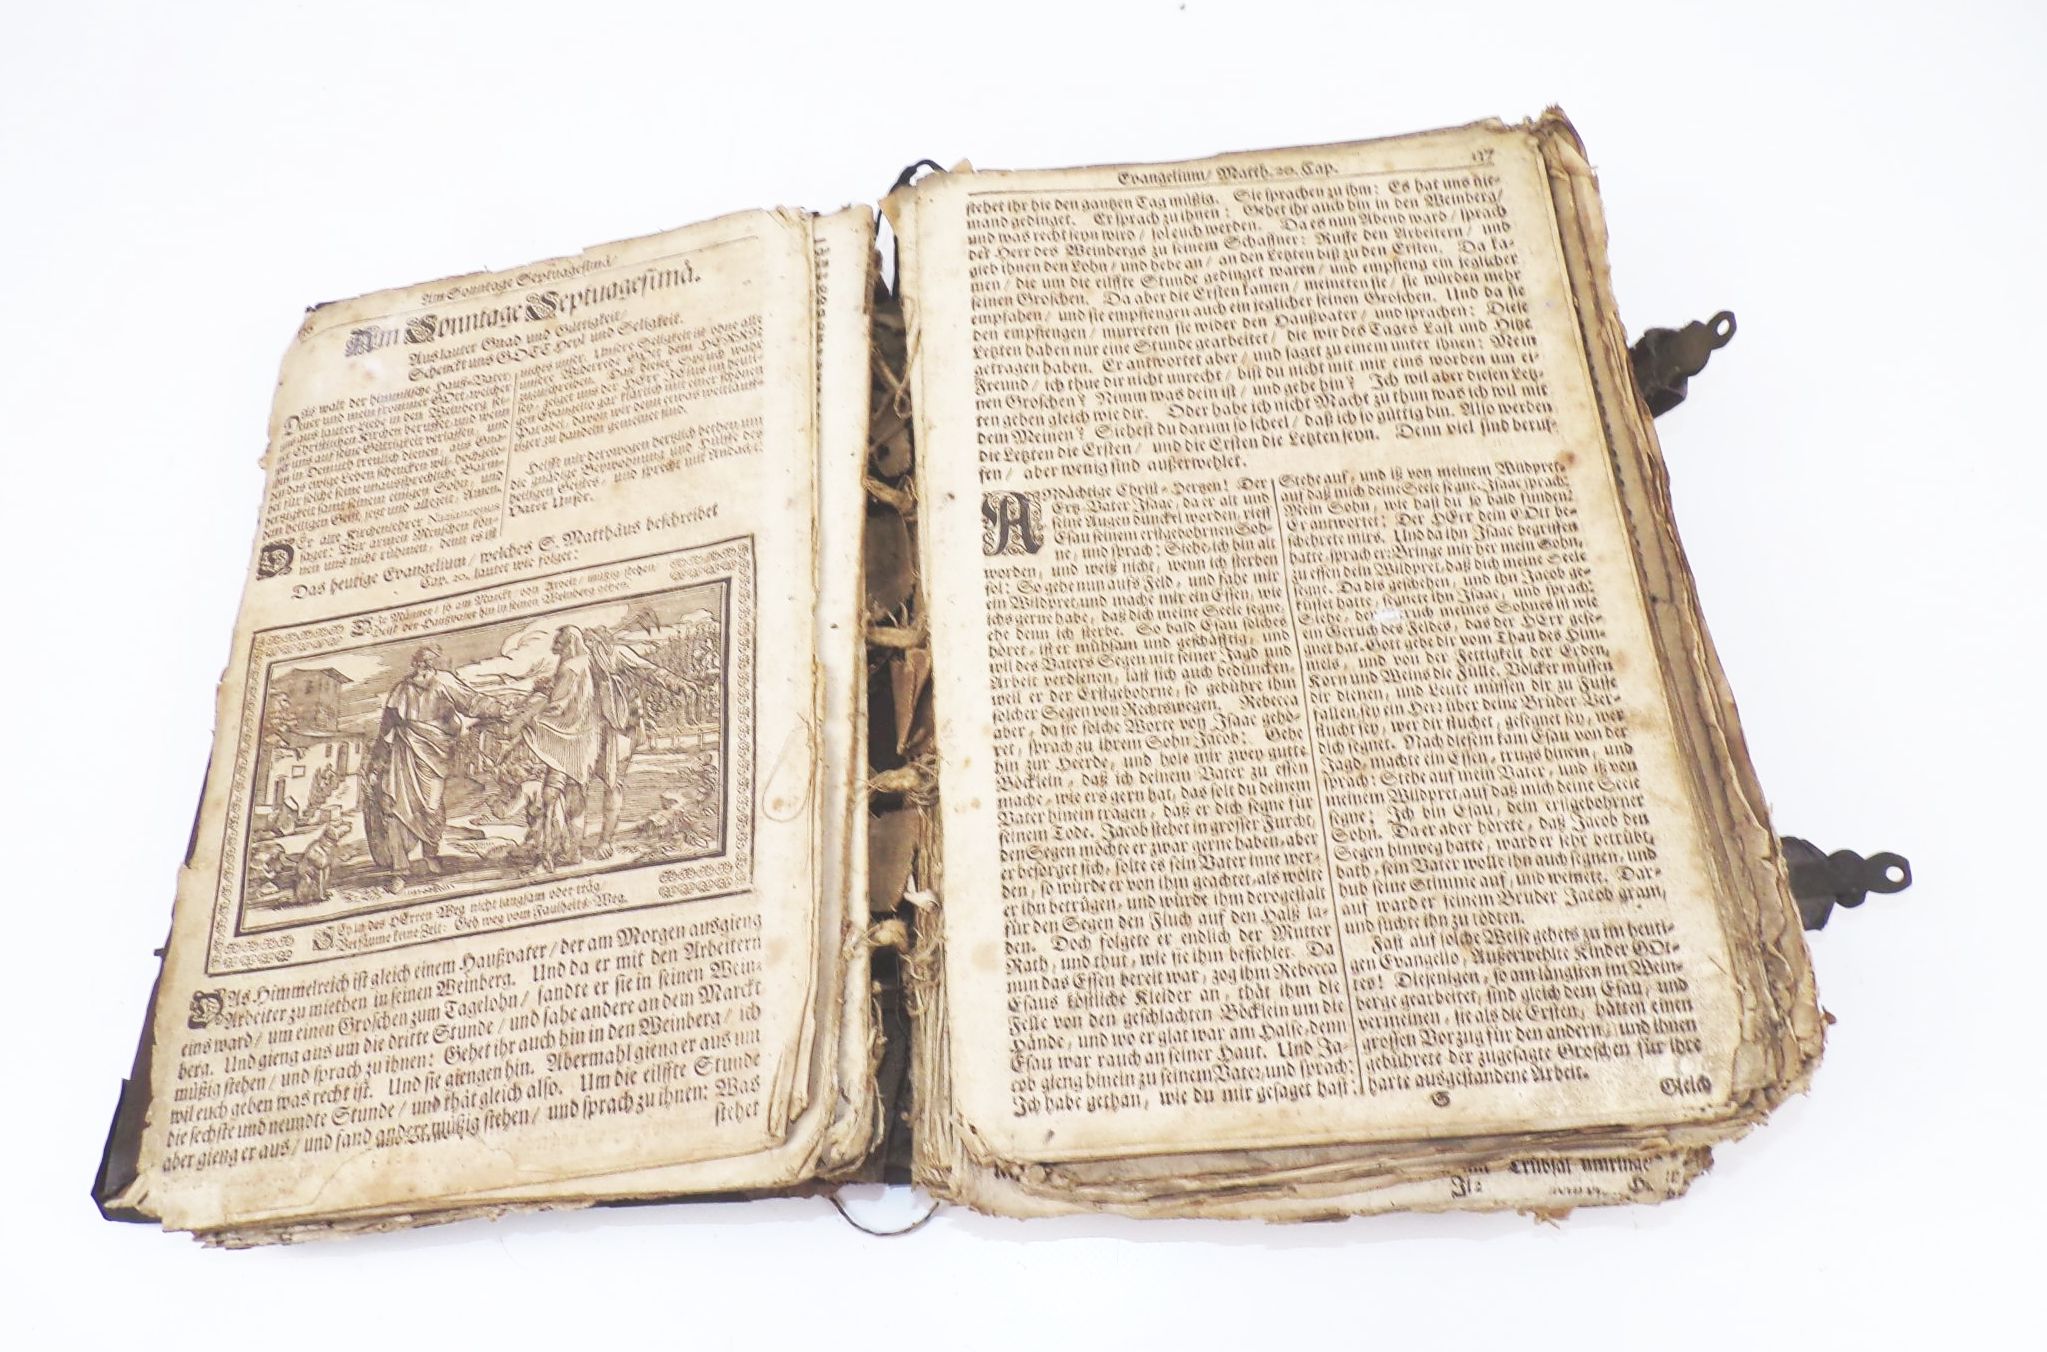 Am Sonntage Septuagesimä/
Am Sonntage Septuagesimä.
Aus lauter Gnad und Gütigkeit/
Schenckt uns GOTT Heyl und Seligkeit.
Das walt der himmlische Hauß-Vater,
und mein frommer GOtt, welcher
uns aus lauter Liebe in den Weinberg sei-
ner Christlichen Kirchen beruffet, uns, wenn
wir uns auf seine Gütigkeit verlassen, und
ihm in Demuth treulich dienen, aus Gna-
den das ewige Leben schencken wil, hochgelo-
bet für solche seine unaussprechliche Barm-
hertzigkeit samt seinem einigen Sohn, und
dem heiligen Geist, jetzt und allezeit, Amen.
DEr alte Kirchenlehrer Nazianzenus
saget: Wir armen Menschen kön-
nen uns nicht rühmen, denn es ist
nichts unser. Unsere Seligkeit ist ohne alle
unsere Widerrede GOtt dem HERRN
zuzuschreiben. Daß dieser Spruch wahr
sey, zeiget uns der HErr JEsus im heuti-
gen Evangelio gar klärlich mit einer schönen
Parabel, davon wir denn etwas weitläuff-
tiger zu handeln gemeinet sind.
Helfft mir derowegen hertzlich bethen um
die gnädige Beywohnung und Hülffe des
heiligen Geistes, und sprecht mit Andacht:
Vater Unser.
Das heutige Evangelium/ welches S. Matthäus beschreibet
Cap. 20. lautet wie folget:
DIe Männer/ so am Marckt/ von Arbeit/ müßig stehen/
Heist der Haußvater hin in seinen Weinberg gehen.
SEy ich des HErren Weg nicht langsam oder träg/
Versäume keine Zeit: Geh weg vom Faulheits-Weg.
DAs Himmelreich ist gleich einem Haußvater/ der am Morgen ausgieng
Arbeiter zu miethen in seinen Weinberg. Und da er mit den Arbeitern
eins ward/ um einen Groschen zum Tagelohn/ sandte er sie in seinen Wein-
berg. Und gieng aus um die dritte Stunde/ und sahe andere an dem Marckt
müßig stehen/ und sprach zu ihnen: Gehet ihr auch hin in den Weinberg/ ich
wil euch geben was recht ist. Und sie giengen hin. Abermahl gieng er aus um
die sechste und neundte Stunde/ und thät gleich also. Um die eilffte Stunde
aber gieng er aus/ und fand andere müßig stehen/ und sprach zu ihnen: Was
stehet
Evangelium/ Matth. 20. Cap. 137
stehet ihr hie den gantzen Tag müßig. Sie sprachen zu ihm: Es hat uns nie-
mand gedinget. Er sprach zu ihnen: Gehet ihr auch hin in den Weinberg/
und was recht seyn wird/ sol euch werden. Da es nun Abend ward/ sprach
der Herr des Weinbergs zu seinem Schaffner: Ruffe den Arbeitern/ und
gieb ihnen den Lohn/ und hebe an/ an den Letzten biß zu den Ersten. Da ka-
men/ die um die eilffte Stunde gedinget waren/ und empfieng ein jeglicher
seinen Groschen. Da aber die Ersten kamen/ meineten sie/ sie würden mehr
empfahen/ und sie empfiengen auch ein jeglicher seinen Groschen. Und da sie
den empfiengen/ murreten sie wider den Haußvater/ und sprachen: Diese
Letzten haben nur eine Stunde gearbeitet/ die wir des Tages Last und Hitze
getragen haben. Er antwortet aber/ und saget zu einem unter ihnen: Mein
Freund/ ich thue dir nicht unrecht/ bist du nicht mit mir eins worden um ei-
nen Groschen? Nimm was dein ist/ und gehe hin? Ich wil aber diesen Letz-
ten geben gleich wie dir. Oder habe ich nicht Macht zu thun was ich wil mit
dem Meinen? Siehest du darum so scheel/ daß ich so gütig bin. Also werden
die Letzten die Ersten/ und die Ersten die Letzten seyn. Denn viel sind beruf-
fen/ aber wenig sind außerwehlet.
ANdächtige Christ-Hertzen! Der
Ertz-Vater Isaac, da er alt und
seine Augen dunckel worden, rieff
Esau seinem erstgebohrnen Soh-
ne, und sprach: Siehe, ich bin alt
worden, und weiß nicht, wenn ich sterben
sol: So gehe nun aufs Feld, und fahe mir
ein Wildpret, und mache mir ein Essen, wie
ichs gerne habe, daß dich meine Seele segne,
ehe denn ich sterbe. So bald Esau solches
höret, ist er mühsam und geschäfftig, und
wil des Vaters Segen mit seiner Jagd und
Arbeit verdienen, läst sich auch bedüncken,
weil er der Erstgebohrne, so gebühre ihm
solcher Segen von Rechtswegen. Rebecca
aber, da sie solche Worte von Isaac gehö-
ret, sprach zu ihrem Sohn Jacob: Gehe
hin zur Heerde, und hole mir zwey gutte
Böcklein, daß ich deinem Vater zu essen
mache, wie ers gern hat, das solt du deinem
Vater hinein tragen, daß er dich segne für
seinem Tode. Jacob stehet in grosser Furcht,
den Segen möchte er zwar gerne haben, aber
er besorget sich, solte es sein Vater inne wer-
den, so würde er von ihm geachtet, als wolte
er ihn betrügen, und würde ihm derogestalt
für den Segen den Fluch auf den Halß la-
den. Doch folgete er endlich der Mutter
Rath, und thut, wie sie ihm befiehlet. Da
nun das Essen bereit war, zog ihm Rebecca
Esaus köstliche Kleider an, thät ihm die
Felle von den geschlachten Böcklein um die
Hände, und wo er glat war am Halse, denn
Esau war rauch an seiner Haut. Und Ja-
cob gieng hinein zu seinem Vater, und sprach:
Ich habe gethan, wie du mir gesaget hast:
Stehe auf, und iß von meinem Wildpret,
auf daß mich deine Seele segne. Isaac sprach:
Mein Sohn, wie hast du so bald funden?
Er antwortet: Der HErr dein GOtt be-
schehrete mirs. Und da ihn Isaac begriffen
hatte, sprach er: Bringe mir her mein Sohn,
zu essen dein Wildpret, daß dich meine Seele
segne. Da dis geschehen, und ihn Jacob ge-
küsset hatte, segnete ihn Isaac, und sprach:
Siehe, der Geruch meines Sohnes ist wie
ein Geruch des Feldes, das der HErr gese-
gnet hat. Gott gebe dir vom Thau des Him-
mels, und von der Fettigkeit der Erden,
Korn und Weins die Fülle. Völcker müssen
dir dienen, und Leute müssen dir zu Fusse
fallen, sey ein Herr über deine Brüder. Ver-
flucht sey, wer dir fluchet, gesegnet sey, wer
dich segnet. Nach diesem kam Esau von der
Jagd, machte ein Essen, trugs hinein, und
sprach: Stehe auf mein Vater, und iß von
meinem Wildpret, auf daß mich deine Seele
segne: Ich bin Esau, dein erstgebohrner
Sohn. Da er aber hörete, daß Jacob den
Segen hinweg hatte, ward er sehr betrübt,
bath, sein Vater wolte ihn auch segnen, und
hub seine Stimme auf, und weinete. Dar-
auf ward er seinem Bruder Jacob gram,
und suchte ihn zu tödten.
Fast auf solche Weise gehets zu im heuti-
gen Evangelio, Außerwehlte Kinder GOt-
tes! Diejenigen, so am längsten im Wein-
berge gearbeitet, sind gleich dem Esau, und
vermeinen, sie als die Ersten, hätten einen
grossen Vorzug für den andern, und ihnen
gebührete der zugesagte Groschen für ihre
harte ausgestandene Arbeit.
S
Gleich
Trübsal umringe